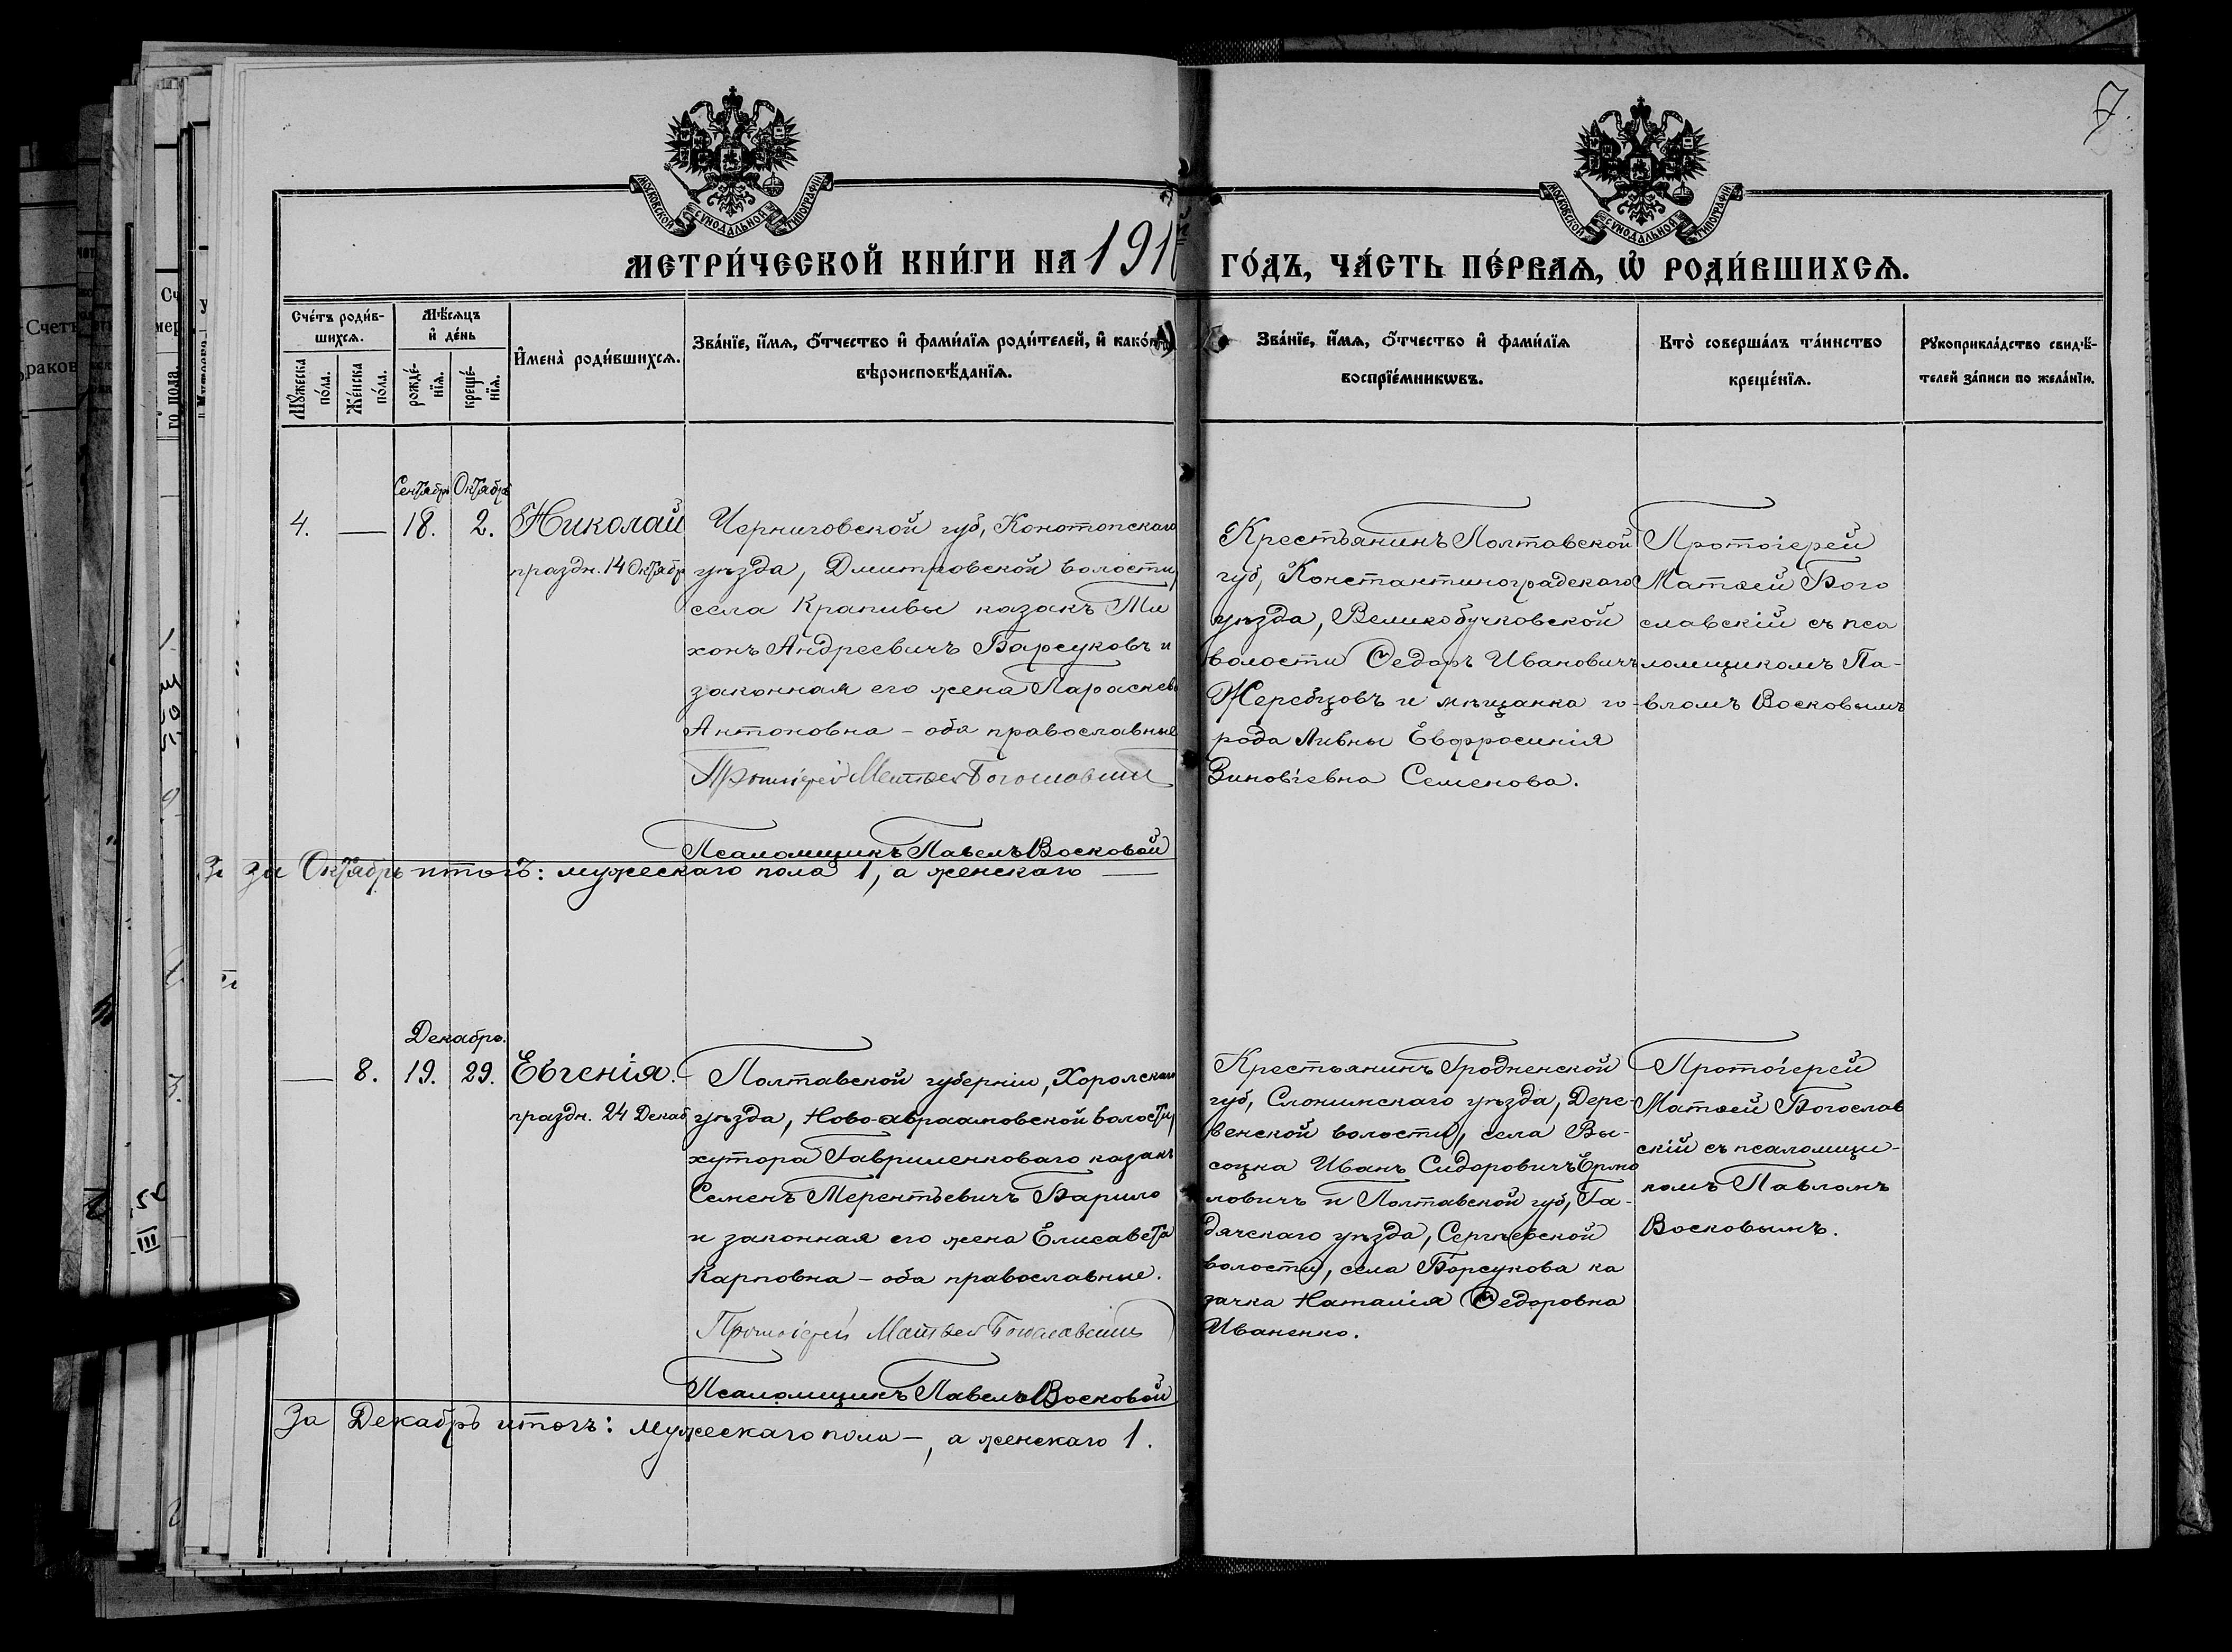 МОСКОВСКОЙ СѴНОДАЛЬНОЙ ТИПОГРАФІИ
МОСКОВСКОЙ СѴНОДАЛЬНОЙ ТИПОГРАФІИ
7
МЕТРИ́ЧЕСКОЙ КНИ́ГИ НА 191
ГО́ДЪ, ЧА́СТЬ ПЕ́РВАѦ, Ѽ РОДИ́ВШИХСѦ.
Сче́тъ роди́в-
шихсѧ.
Мꙋжеска
по́ла.
Же́нска
по́ла.
Мѣ́сѧцъ
и҆ де́нь
рожде́-
нїѧ.
креще́-
нїѧ.
И҆мена̀ роди́вшихсѧ.
Зва́нїе, и҆́мѧ, ѻ҆́тчество и҆ фами́лїѧ роди́телей, и҆ како́гѡ
вѣроисповѣ́данїѧ.
Зва́нїе, и҆́мѧ, ѻ҆́тчество и҆ фами́лїѧ
воспрїе́мникѡвъ.
Кто̀ соверша́лъ та́инство
креще́нїѧ.
Рꙋкоприкла́дство свидѣ́-
телей за́писи по жела́нїю.
Сентябрь Октябрь
4. — 18. 2. Николай
праздн. 14 Октябр
Черниговской губ, Конотопскаго
уѣзда, Дмитровской волости,
села Крапивы казакъ Ти
хонъ Андреевичъ Барсуковъ и
законная его жена Параскева
Антоновна – оба православные
Протоіерей Матѳей Богословскій
Псаломщикъ Павелъ Восковой
Крестьянинъ Полтавской
губ, Константиноградскаго
уѣзда, Великобучковской
волости Ѳедоръ Ивановичъ
Жеребцовъ и мѣщанка го-
рода Ливны Евфросинія
Зиновіевна Семенова.
Протоіерей
Матѳей Бого
славскій съ пса
ломщикомъ Па-
вломъ Восковымъ
За Октябрь итогъ: мужескаго пола 1, а женскаго —
Декабрь.
— 8. 19. 29. Евгенія.
праздн. 24 Декаб
Полтавской губерніи, Хорольскаго
уѣзда, Ново-авраамовской волости,
хутора Гавриленковаго казакъ
Семенъ Терентьевичъ Барило
и законная его жена Елисавета
Карповна – оба православные.
Протоіерей Матѳей Богословскій
Псаломщикъ Павелъ Восковой
Крестьянинъ Гродненской
губ, Слонимскаго уѣзда, Дере-
венской волости, села Вы-
соцка Иванъ Сидоровичъ Ермо
ловичъ и Полтавской губ, Га-
дячскаго уѣзда, Сергѣевской
волости, села Борсукова ка
зачка Наталія Ѳедоровна
Иваненко.
Протоіерей
Матѳей Богослав
скій съ псаломщи-
комъ Павломъ
Восковымъ.
За Декабрь итогъ: мужескаго пола –, а женскаго 1.